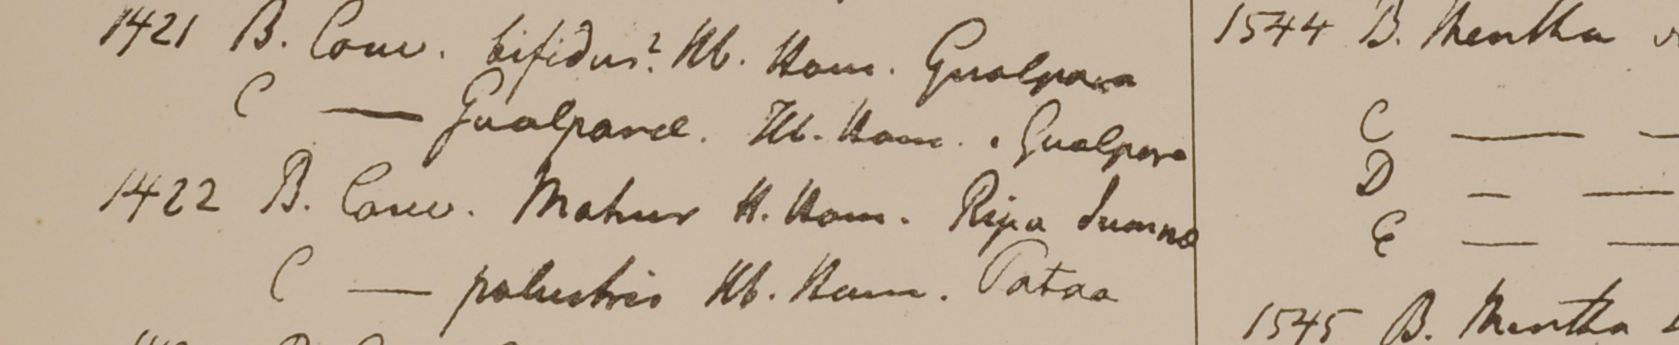 1421 B. Conv. bifidus? Hb. Ham. Gualpara
C — Gualparae. Hb. Ham. Gualpara
1422 B. Conv. Mahur H. Ham. Ripa Jumnae
C — palustris Hb. Ham. Patna
1544 B. Mentha
C — —
D — —
E — —
1545 B. Mentha